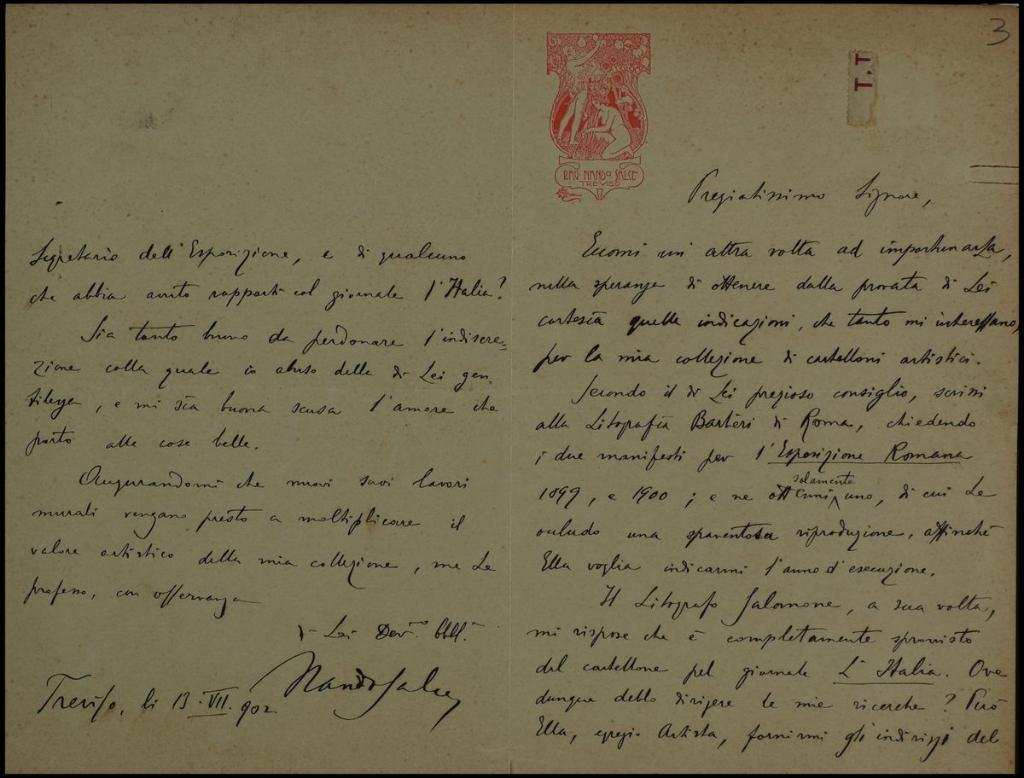 3
T.T
RAG. NANDO SALCE
TREVISO
Pregiatissimo Signore,
Eccomi un altra volta ad importunarLa,
nella speranza di ottenere dalla provata di Lei
cortesia quelle indicazioni, che tanto mi interessano,
per la mia collezione di cartelloni artistici.
Secondo il di Lei prezioso consiglio, scrissi
alla Litografia di Roma, chiedendo
i due manifesti per l'Esposizione Romana
1899, e 1900; e ne ottenni solamente uno, di cui Le
accludo una spaventosa riproduzione, affinchè
Ella voglia indicarmi l'anno d'esecuzione.
Il Litografo Salomone, a sua volta,
mi rispose che è completamente sprovvisto
del cartellone pel giornale L'Italia. Ove
dunque debbo dirigere le mie ricerche? Può
Ella, egregio Artista, fornirmi gli indirizzi del
Segretario dell'Esposizione, e di qualcuno
che abbia avuto rapporti col giornale l'Italia?
Sia tanto buono da perdonare l'indiscre-
zione colla quale io abuso della di Lei gen-
tilezza, e mi sia buona scusa l'amore che
porto alle cose belle.
Augurandomi che nuovi suoi lavori
murali vengano presto a moltiplicare il
valore artistico della mia collezione, me Le
professo, con osservanza
di Lei Dev.mo Obbl.
Nando Salce
Treviso, li 13.VII.902